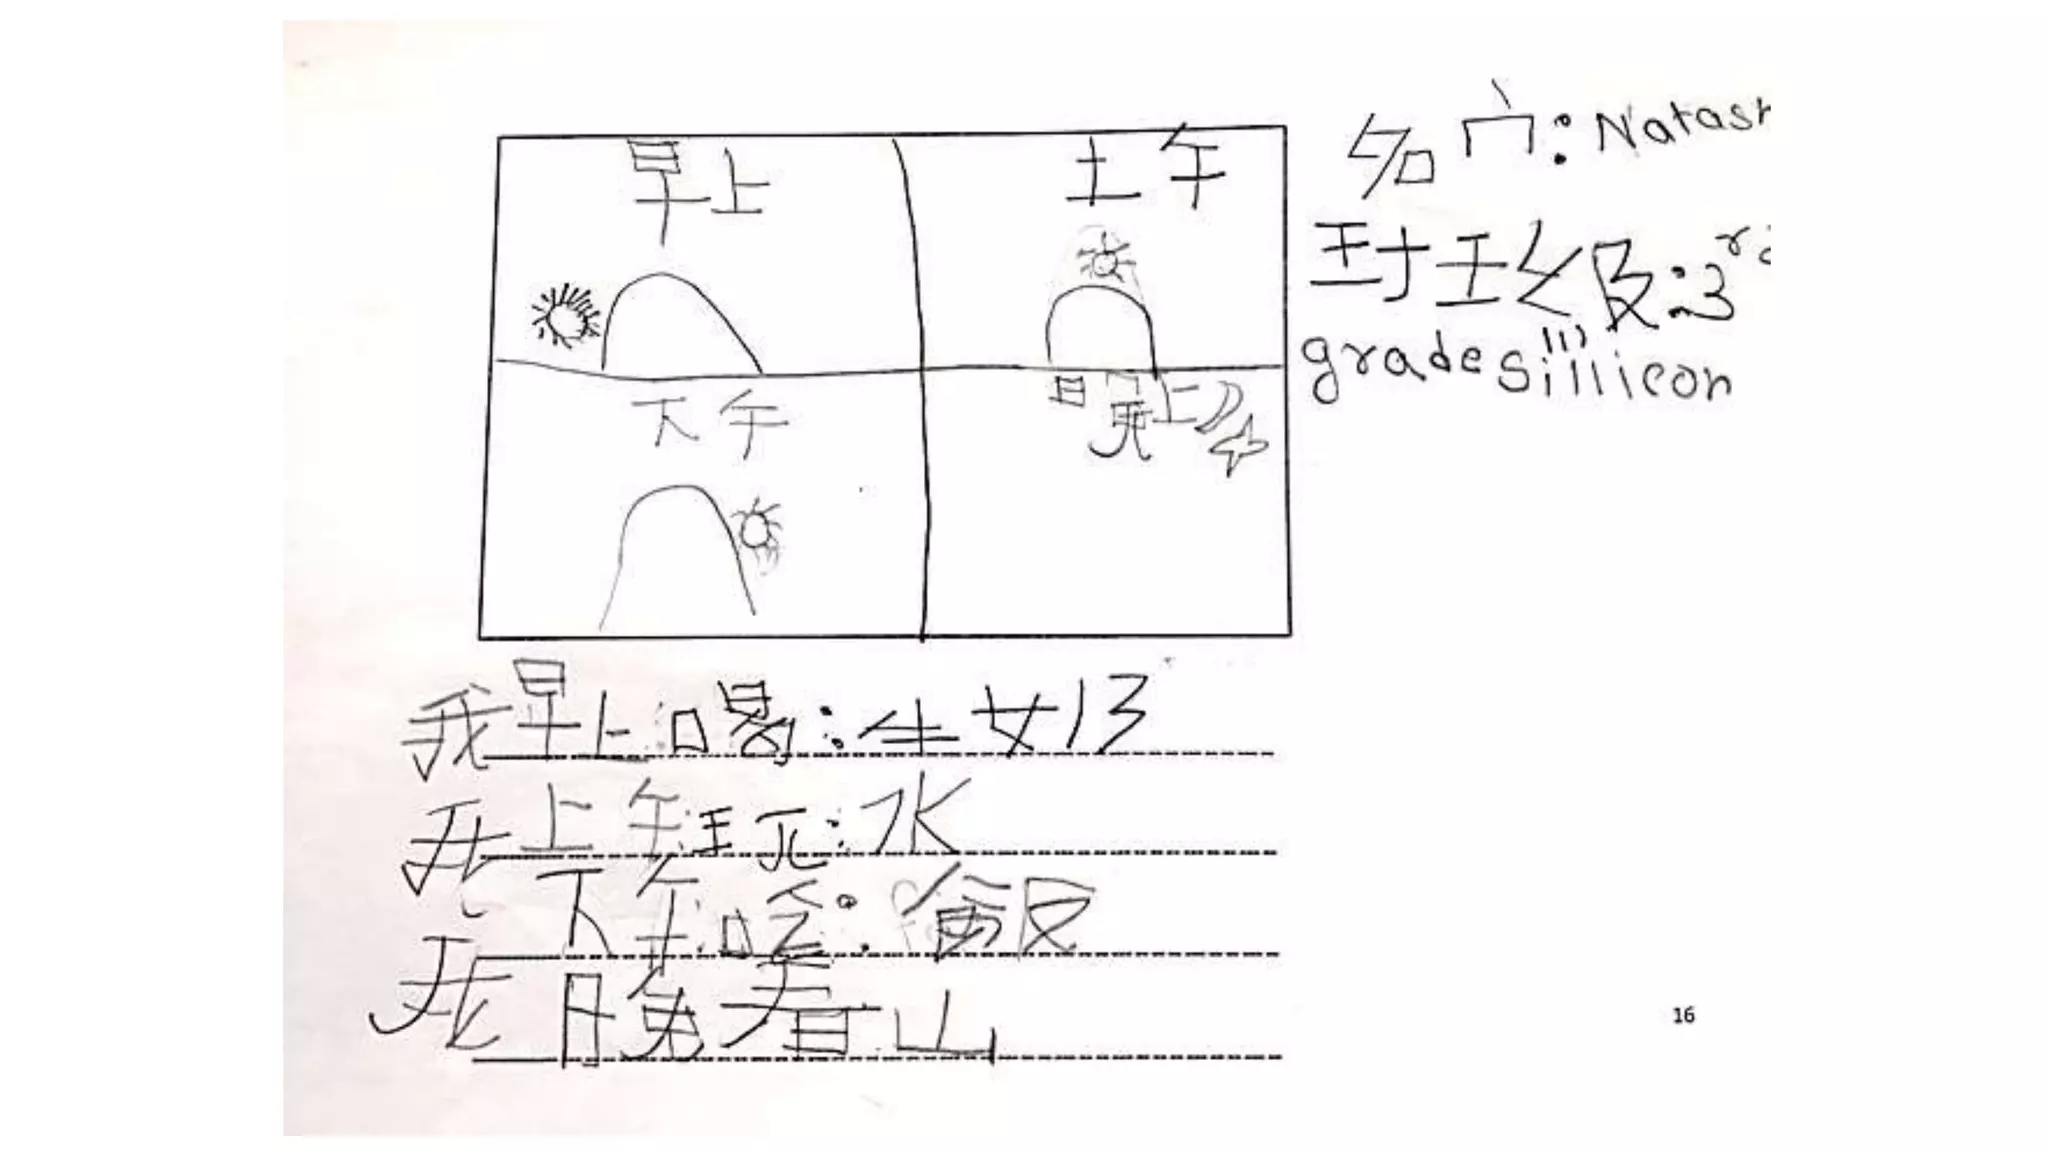 早上
上午
下午
晚上
名字: Natash
班级: 3rd
grade Sillicon
我早上喝: 牛奶
我上午玩: 水
我下午吃: 饭
我晚看山
16